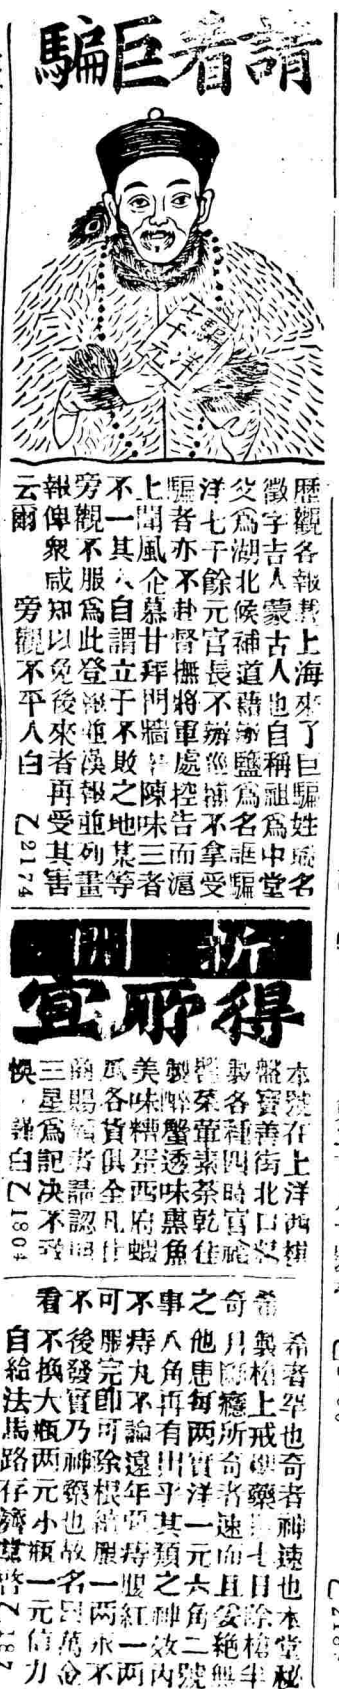 請看巨騙
騙洋
七千元
歷觀各報載上海來了巨騙姓戚名
徵字吉人蒙古人也自稱祖為中堂
父為湖北候補道藉辦鹽為名誆騙
洋七千餘元官長不辦巡捕不拿受
騙者亦不赴督撫將軍處控告而滬
上聞風企慕甘拜門牆陳味三者
不一其人自謂立于不敗之地某等
旁觀不服為此登報並漢報並列畫
報俾衆咸知以免後來者再受其害
云爾 旁觀不平人白 乙2174
新開
得所宜
本號在上洋西棋
盤寶善街北口
製各種四時官
菜葷素茶乾佳
製醉蟹透味熏魚
美味糟蛋西府蝦
瓜各貨俱全凡仕
商賜顧者請認明
三星為記决不致
悞 謹白 乙1804
希奇之事不可不看
希者罕也奇者神速也本堂秘
製梅上戒藥七日除
月斷癮所奇者速而且妥絶無
他患每两實洋一元六角二號
八角再有出乎其類之神效内
痔丸不論遠年痔服紅一两
服完即可除根服一两永不
後發實乃神藥也故名萬金
不換大瓶两元小瓶一元信力
自給法馬路存濟堂啓